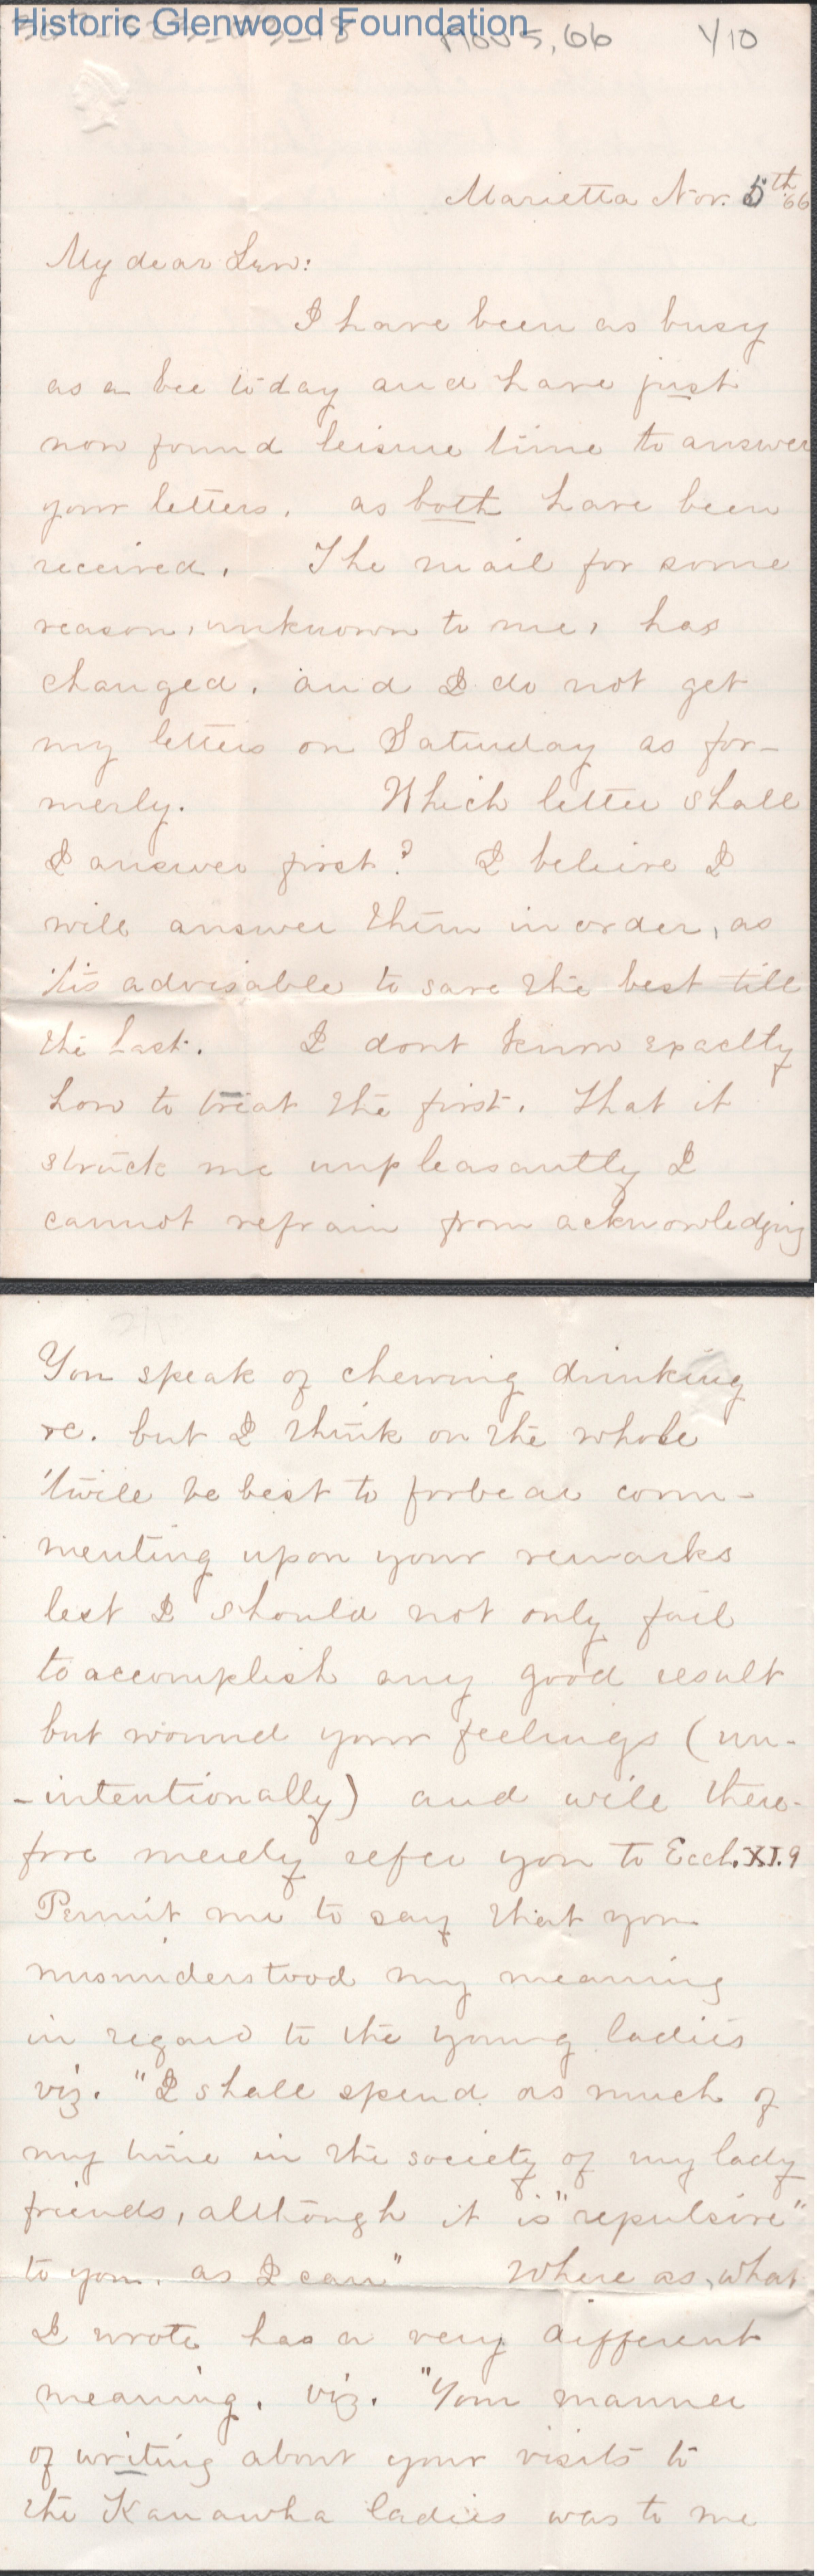 Historic Glenwood Foundation
Nov 5, 66 1/10
Marietta Nov. 5th '66
My dear Lew:
I have been as busy
as a bee to day and have just
now found leisure time to answer
your letters, as both have been
received. The mail for some
reason, unknown to me, has
changed, and I do not get
my letters on Saturday as for-
merly. Which letter shall
I answer first? I believe I
will answer them in order, as
'tis advisable to save the best till
the last. I dont know exactly
how to treat the first. That it
struck me unpleasantly I
cannot refrain from acknowledging
You speak of chewing drinking
&c. but I think on the whole
'twill be best to forbear com-
menting upon your remarks
lest I should not only fail
to accomplish any good result
but wound your feelings (un-
-intentionally) and will there-
fore merely refer you to Eccl. XI.9
Permit me to say that you
misunderstood my meaning
in regard to the young ladies
viz. "I shall spend as much of
my time in the society of my lady
friends, although it is "repulsive"
to you, as I can" Where as, what
I wrote has a very different
meaning, viz. "Your manner
of writing about your visits to
the Kanawha ladies was to me